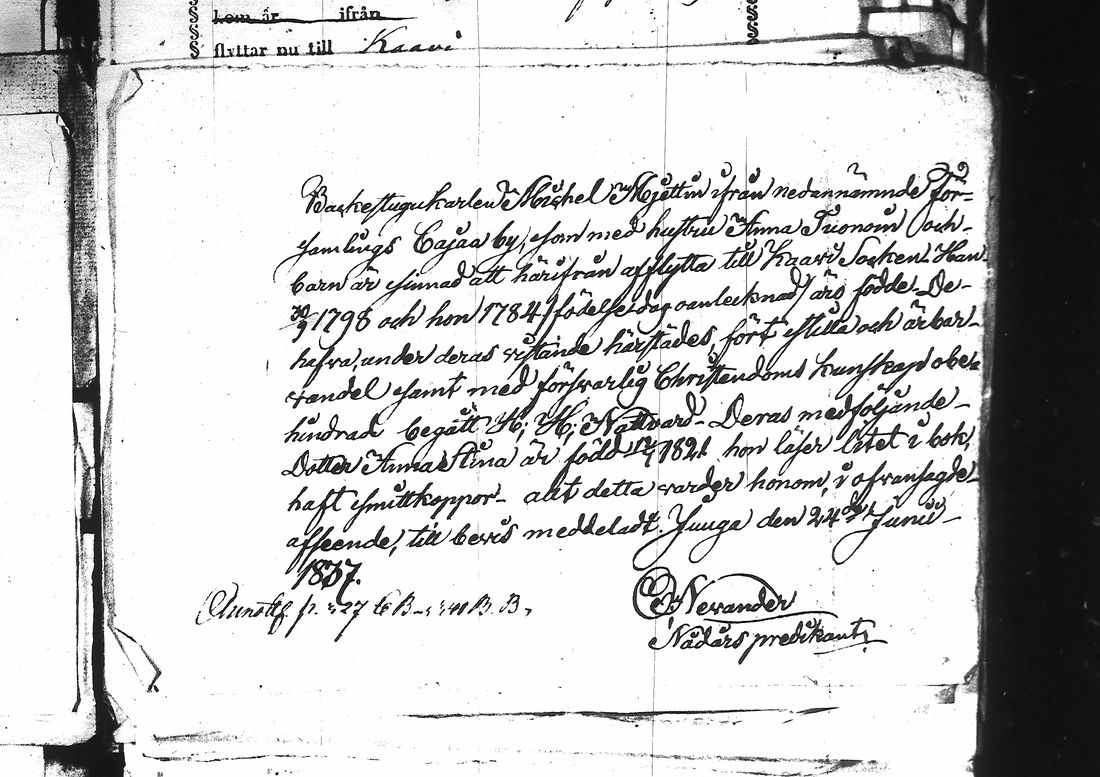 kom år ifrån
flyttar nu till Kaavi
Backstugukarlen Michel Mjettin ifrån nedannämnde För-
samlings Cajaa by, som med hustru Anna Tuonoin och
barn är sinnad att härifrån afflytta till Kaavi Socken. Han
30/9 1798 och hon 1784 /födelsedag oantecknad/ äro födde. De
hafva, under deras vistande härstädes, fört stilla och ärbar
vandel samt med försvarlig Christendoms kunskap obe-
hindrade begått H: H: Nattvard. Deras medföljande
Dotter Anna Stina är född 12/7 1821. hon läser litet i bok,
haft smittkoppor. allt detta varder honom, i ofvansagde
afseende, till bevis meddeladt. Juuga den 24de Junii
1837.
p. 327 C B. B.B.
Nevander
Nådårs predikant,